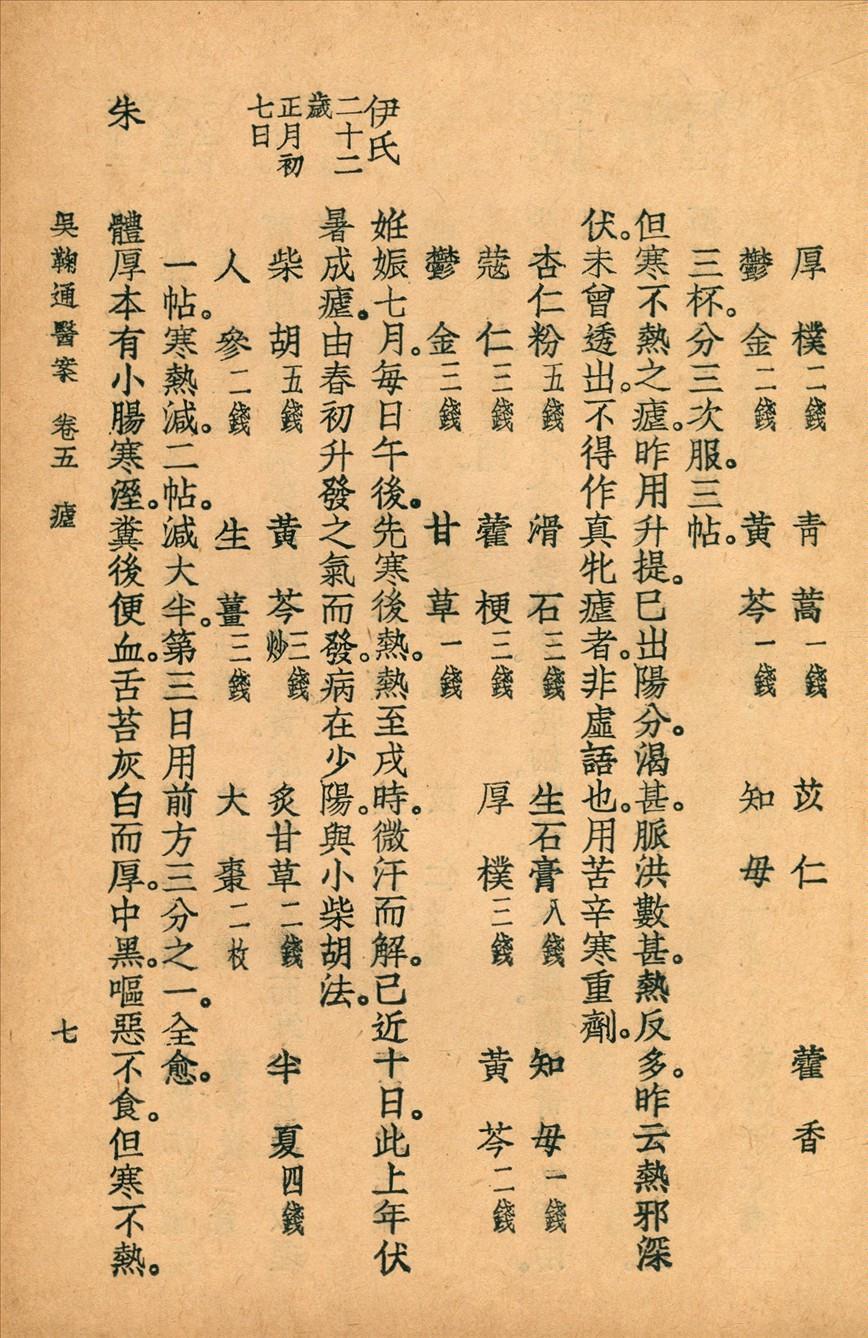 厚樸二錢　青蒿一錢　苡仁　藿香
鬱金二錢　黃芩一錢　知母
三杯。分三次服。三帖。
但寒不熱之瘧。昨用升提。已出陽分。渴甚。脈洪數甚。熱反多。昨云熱邪深
伏。未曾透出。不得作真牝瘧者。非虛語也。用苦辛寒重劑。
杏仁粉五錢　滑石三錢　生石膏八錢　知母一錢
蔻仁三錢　藿梗三錢　厚樸三錢　黃芩二錢
鬱金三錢　甘草一錢
伊氏
二十二
歲
正月初
七日
姙娠七月。每日午後。先寒後熱。熱至戌時。微汗而解。已近十日。此上年伏
暑成瘧。由春初升發之氣而發。病在少陽。與小柴胡法。
柴胡五錢　黃芩炒三錢　炙甘草二錢　半夏四錢
人參二錢　生薑三錢　大棗二枚
一帖。寒熱減。二帖。減大半。第三日用前方三分之一。全愈。
朱　體厚本有小腸寒溼。糞後便血。舌苔灰白而厚。中黑。嘔惡不食。但寒不熱。
吳鞠通醫案　卷五　瘧　七